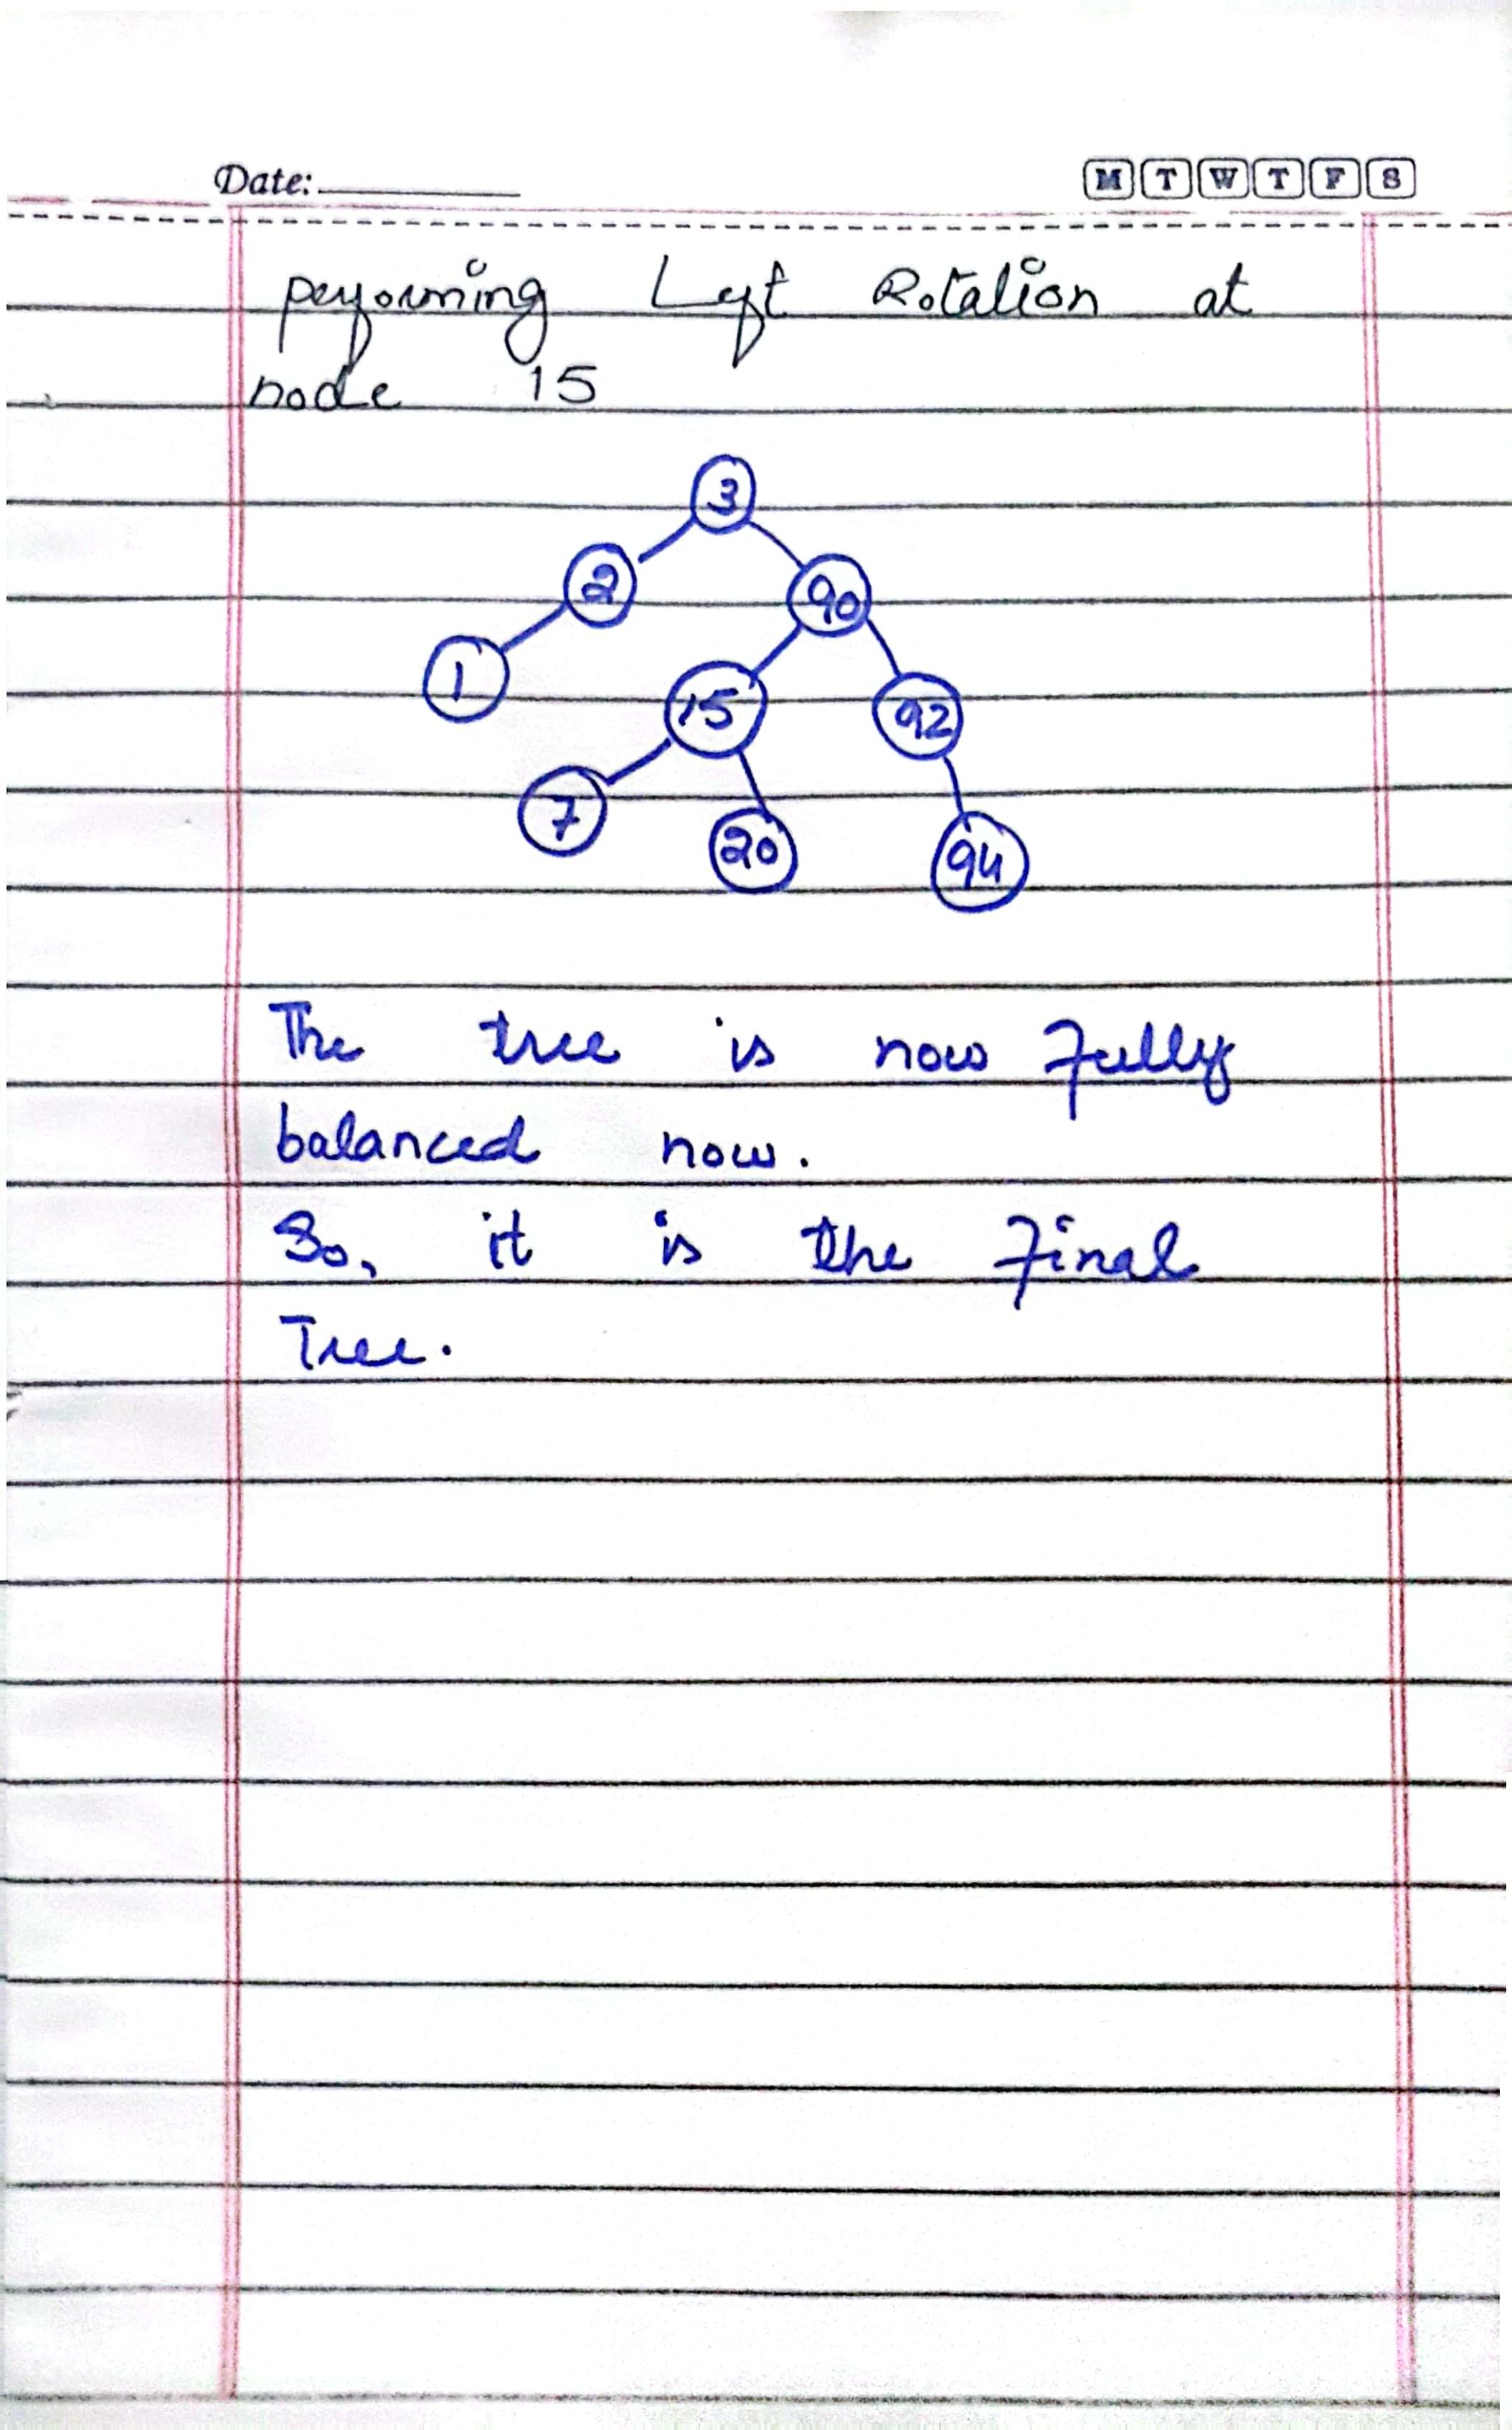 Date:
M T W T F S
performing Left Rotation at
node 15
3
2 90
1 15 92
7 20 94
The tree is now fully
balanced now.
So, it is the final
Tree.